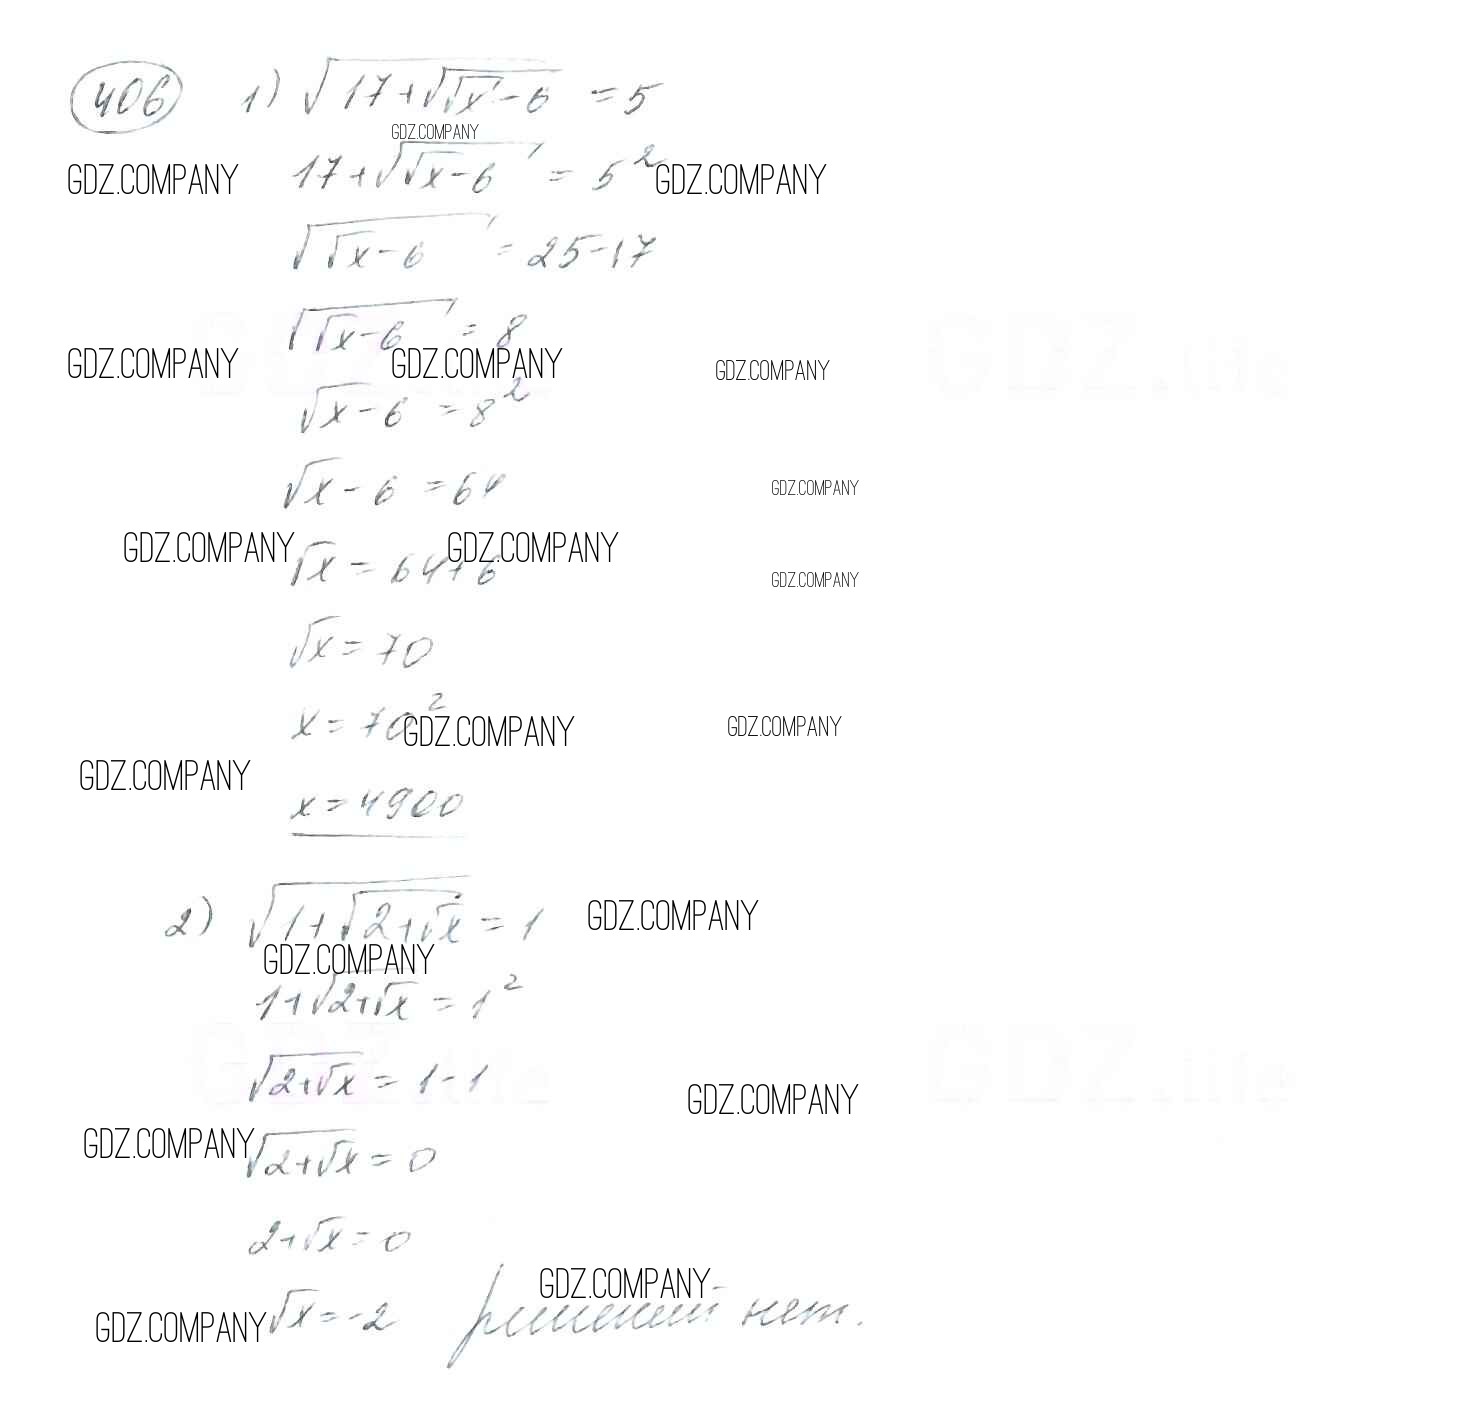 406 1) √(17+√(√x-6)) = 5
GDZ.COMPANY
GDZ.COMPANY 17+√(√x-6) = 5² GDZ.COMPANY
√(√x-6) = 25-17
√(√x-6) = 8
GDZ.life GDZ.life
GDZ.COMPANY GDZ.COMPANY GDZ.COMPANY
√x-6 = 8²
√x-6 = 64
GDZ.COMPANY
GDZ.COMPANY GDZ.COMPANY
√x = 64+6
GDZ.COMPANY
√x = 70
x = 70²
GDZ.COMPANY GDZ.COMPANY
GDZ.COMPANY
x = 4900
2) √(1+√(2+√x)) = 1 GDZ.COMPANY
GDZ.COMPANY
1+√(2+√x) = 1²
GDZ.life GDZ.life
√(2+√x) = 1-1
GDZ.COMPANY
GDZ.COMPANY √(2+√x) = 0
2+√x = 0
GDZ.COMPANY
GDZ.COMPANY √x = -2 решений нет.